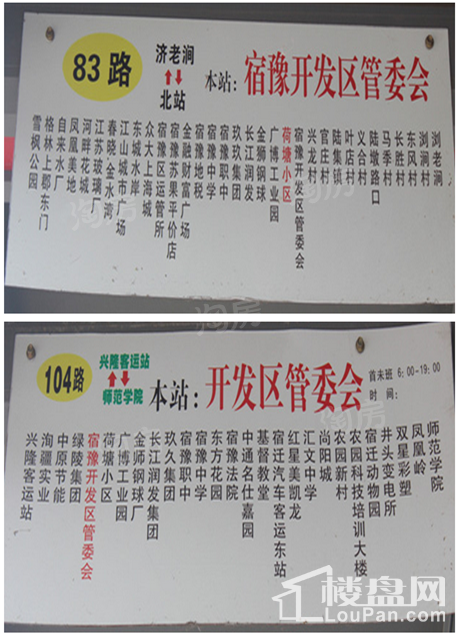 83路
济老涧
北站
本站：宿豫开发区管委会
雪枫公园
格林上郡东门
自来水厂
凤凰美地
河畔花城
江苏玻璃厂
春晓金水湾
江山城市广场
东城水岸
众大上海城
宿豫区运管所
宿豫苏果平价店
金融财富广场
宿豫地税
宿豫中学
宿豫职中
玖玖集团
长江润发
金狮钢球
广博工业园
荷塘小区
宿豫开发区管委会
兴龙村
官庄村
陆集镇
叶店村
义合村
陆墩路口
马季村
长胜村
东风村
浏涧村
浏老涧
104路
兴隆客运站
师范学院
本站：开发区管委会
首末班 6:00-19:00
时 间：
兴隆客运站
洵疆实业
中原节能
绿陵集团
宿豫开发区管委会
荷塘小区
广博工业园
金师钢球厂
长江润发集团
玖久集团
宿豫职中
宿豫中学
东方花园
宿豫法院
中通名仕嘉园
基督教堂
宿迁汽车客运东站
红星美凯龙
汇文中学
尚阳城
农园新村
农园科技培训大楼
宿迁动物园
井头变电所
双星彩塑
凤凰岭
师范学院
淘房
楼盘网
LouPan.com